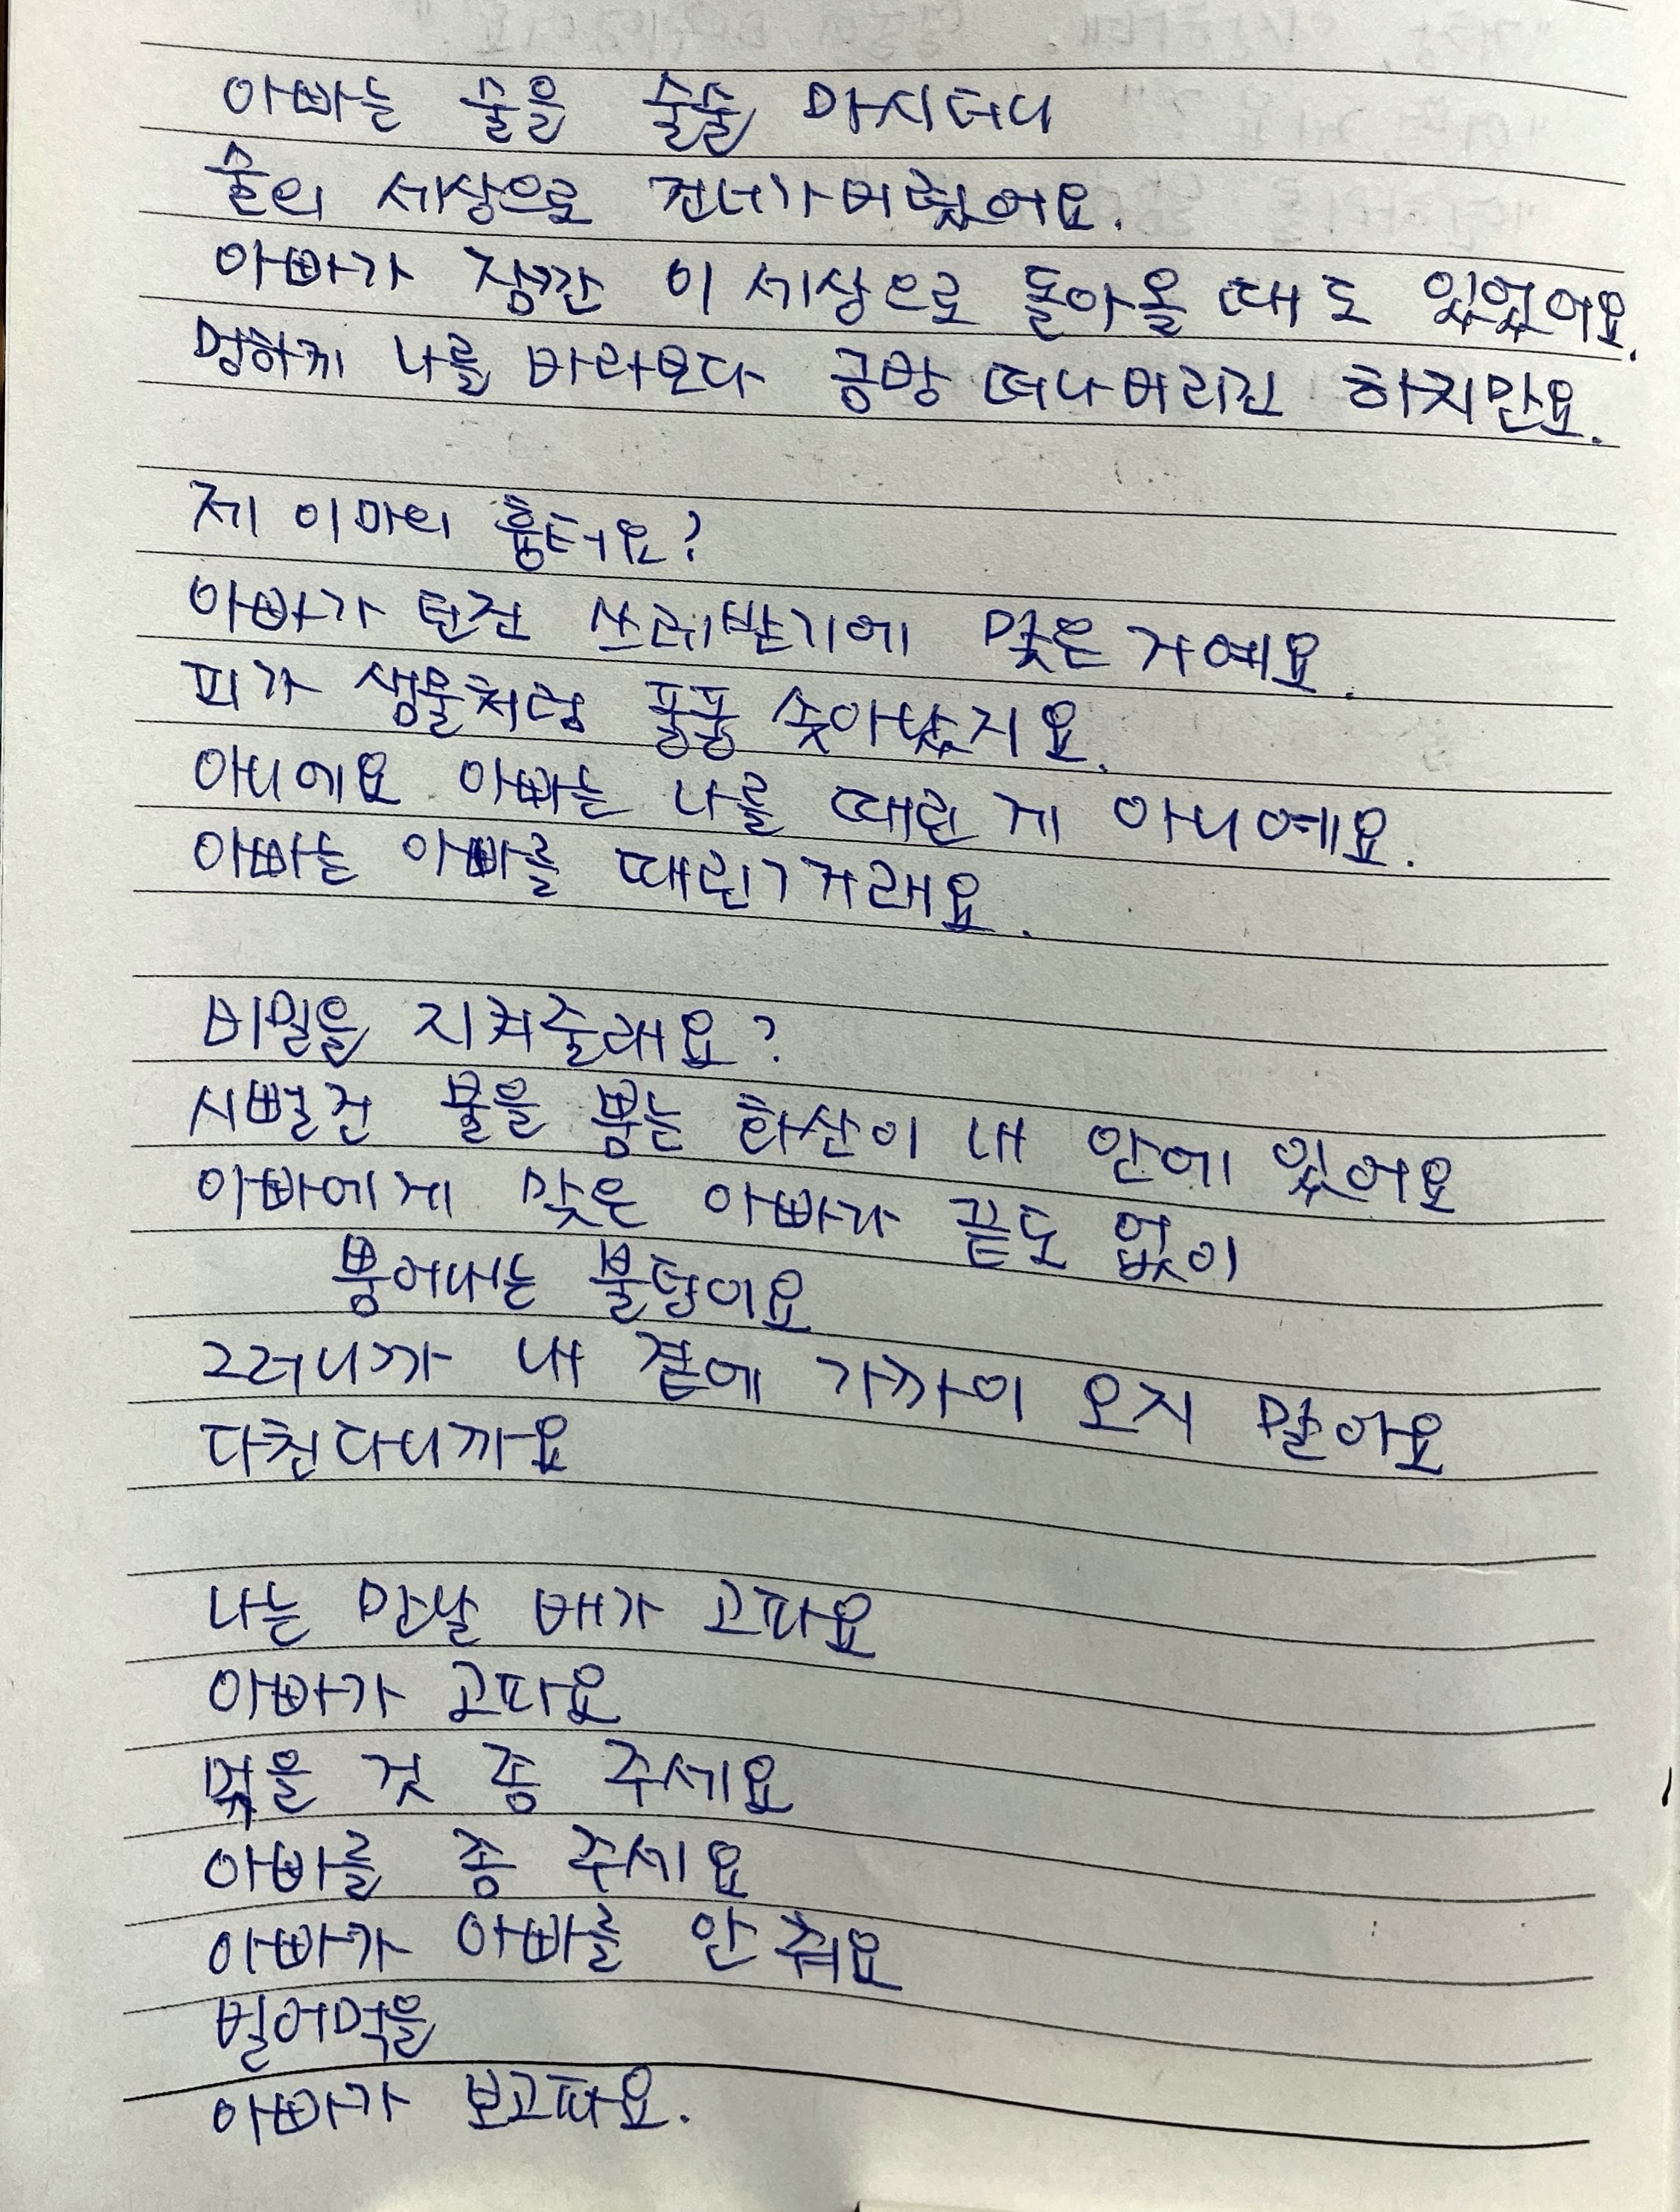 아빠는 술을 술술 마시더니
술의 세상으로 건너가 버렸어요.
아빠가 잠깐 이 세상으로 돌아올 때도 있었어요.
멍하게 나를 바라보다 금방 떠나버리긴 하지만요.
제 이마의 흉터요?
아빠가 던진 쓰레받기에 맞은 거예요.
피가 샘물처럼 퐁퐁 솟아났지요.
아니에요 아빠는 나를 때린 게 아니예요.
아빠는 아빠를 때린 거래요.
비밀을 지켜줄래요?
시뻘건 불을 뿜는 화산이 내 안에 있어요
아빠에게 맞은 아빠가 끝도 없이
뿜어내는 불덩이요
그러니까 내 곁에 가까이 오지 말아요
다친다니까요
나는 만날 배가 고파요
아빠가 고파요
먹을 것 좀 주세요
아빠를 좀 주세요
아빠가 아빠를 안 줘요
빌어먹을
아빠가 보고파요.